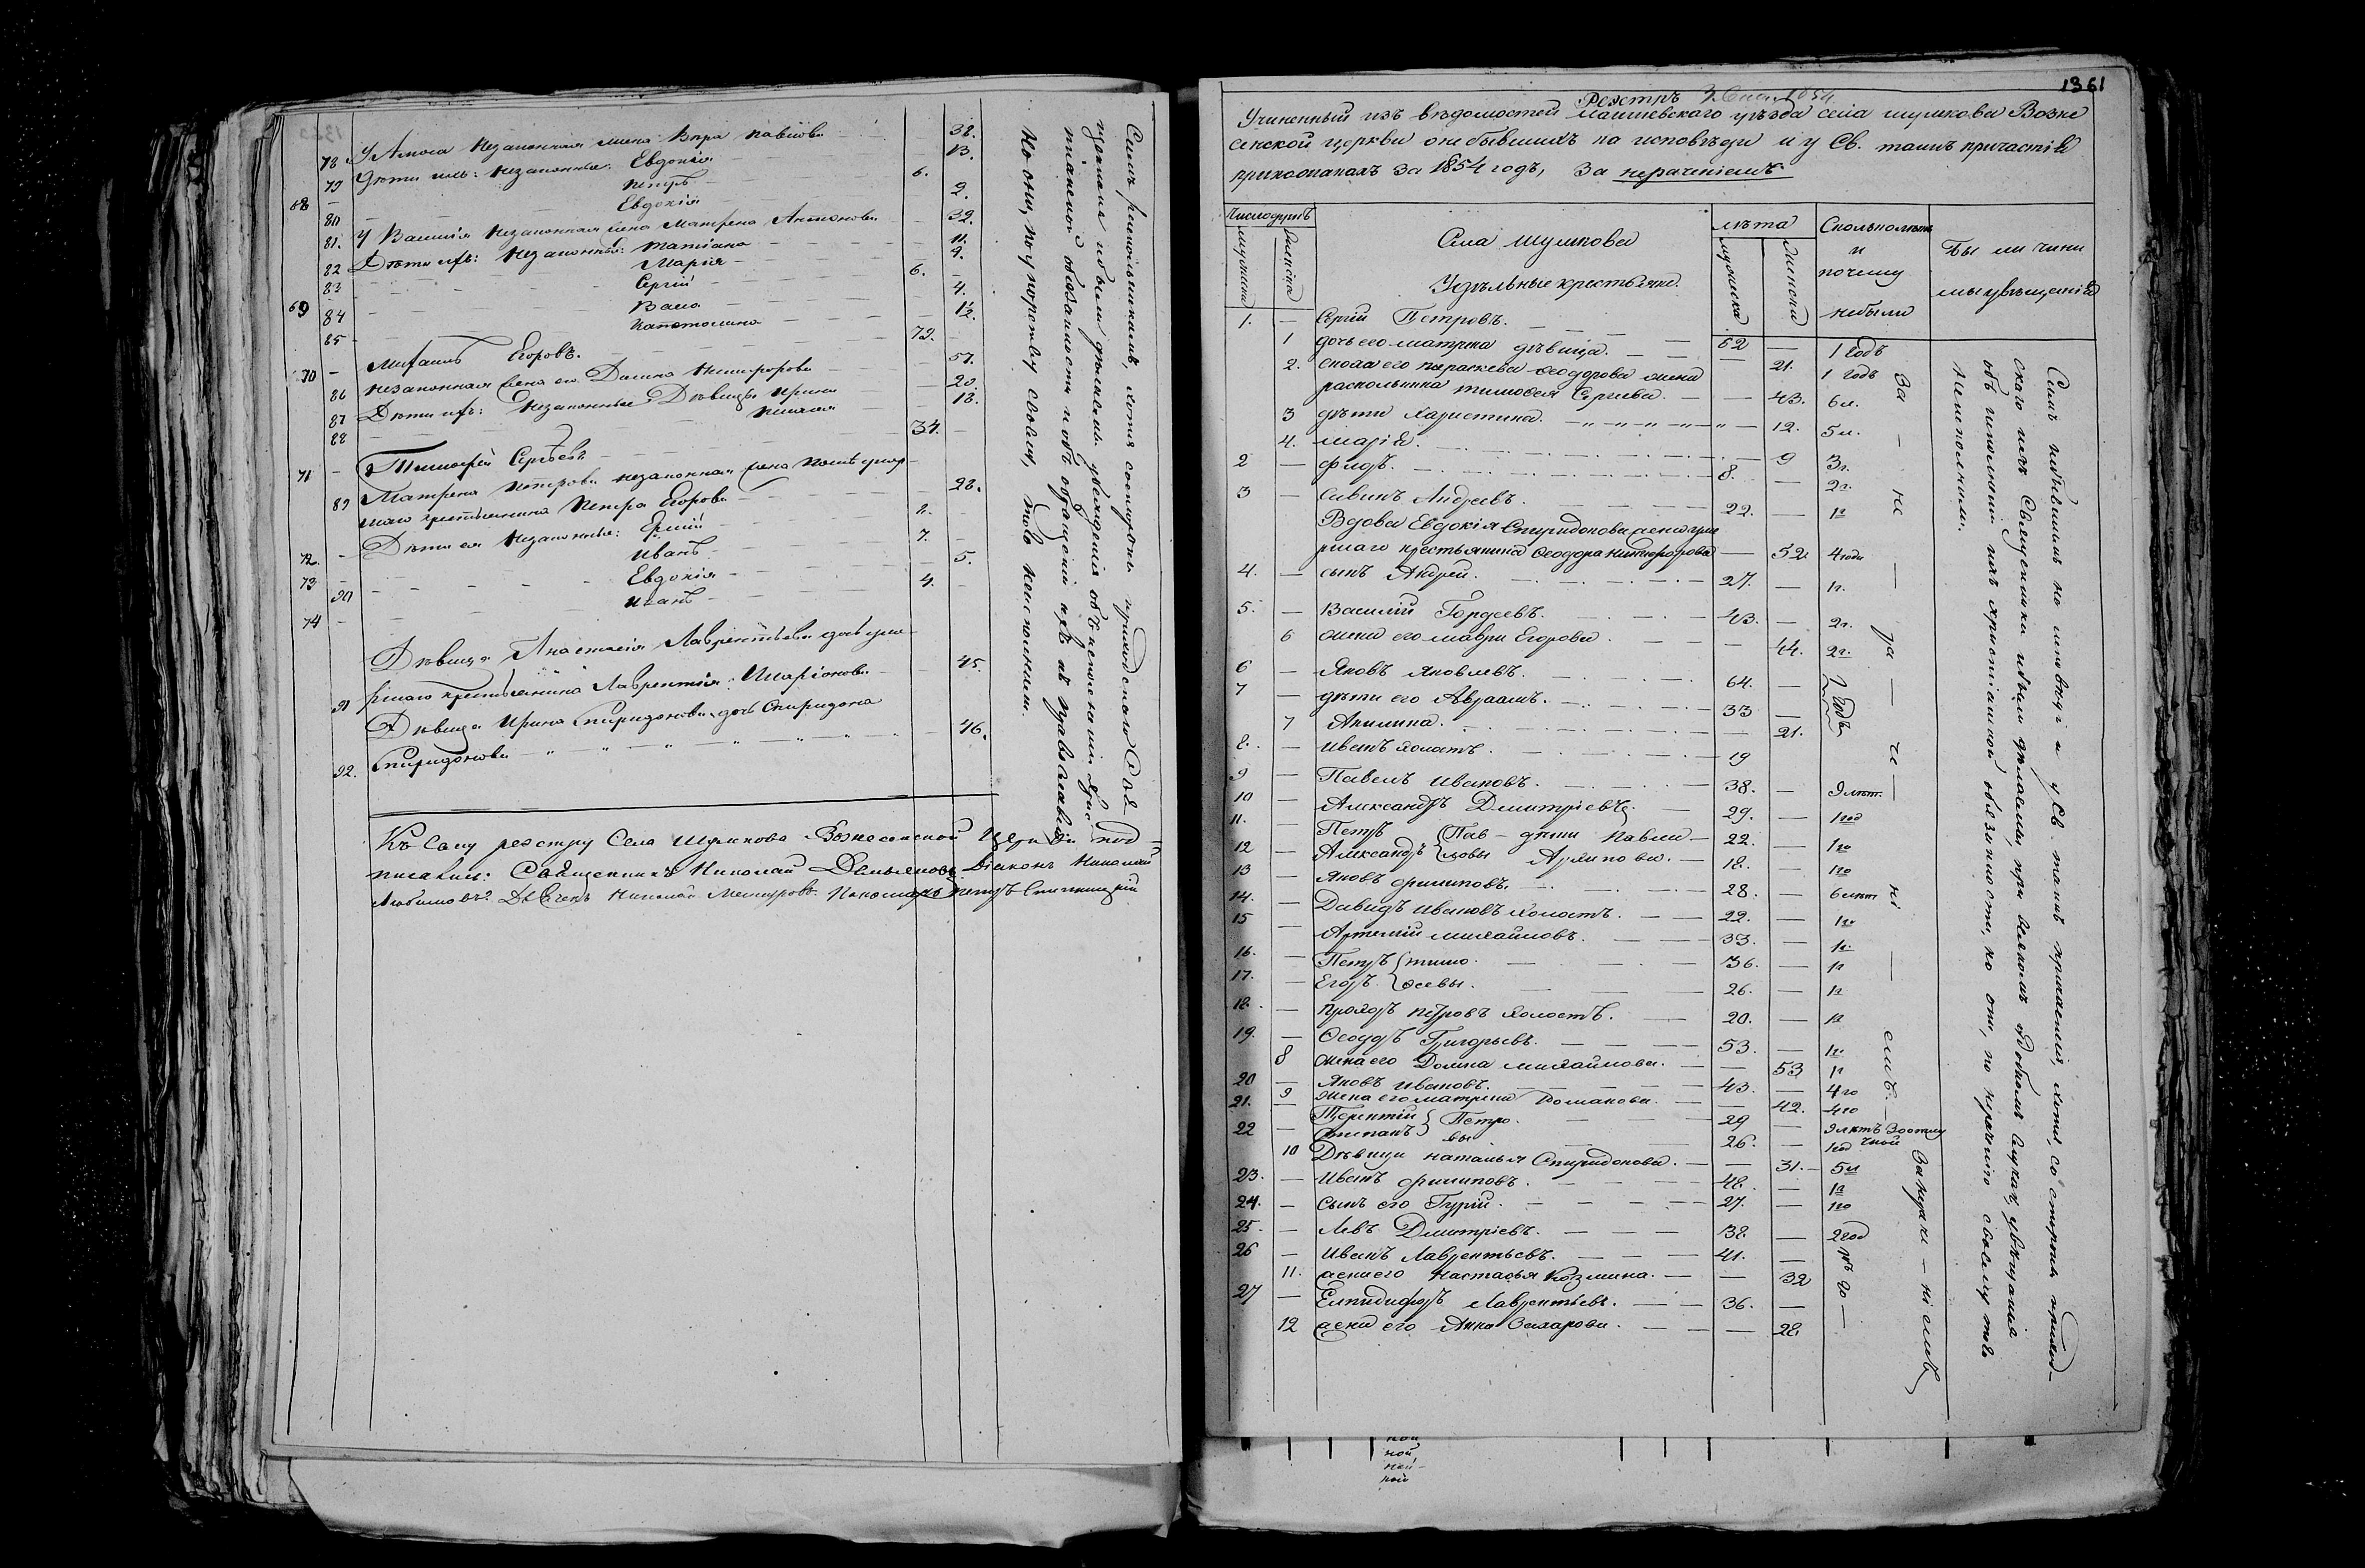 78 У Амоса незаконная жена Вѣра Павлова 38.
79 Дѣти ихъ: незаконные: Евдокія 13.
68 Петръ 6.
80 Евдокія 9.
81. У Василія незаконная жена Матрена Антонова 39.
82 Дѣти ихъ: незаконные: Татіана 11.
83 Марія 9.
69 Сергій 6.
84 Васса 4.
85 Капетолина 1½.
70 Егоровъ. 72.
86 незаконная жена его Домна Никифорова 57.
87 Дѣти ихъ: незаконные Дѣвицы Ирина 20.
88 18.
71 Тимофей Сергѣевъ 34.
89 Матрена Петрова незаконная жена 28.
крестьянина Петра Егорова
72. Дѣти ея незаконные: 2.
73 Иванъ 7.
90 Евдокія 5.
74 Иванъ 4.
Дѣвица Анастасія Лаврентьева дочь умер
91 шаго крестьянина Лаврентія Иларіонова 45.
Дѣвица Ирина Спиридонова, дочь Спиридона
92. Спиридонова 46.
Симъ раскольникамъ, хотя со стороны приходскаго Свя
щенника и были дѣлаемы убѣжденія объ исполненіи Хрис
тіанской обязанности и объ обращеніи ихъ къ православію
но они, по упорству своему, того не исполнили.
Къ сему реэстру Села Шумкова Вознесенской Церкви под-
писались: Священникъ Николай Діаконъ Николай
Любимовъ. Дьячекъ Николай Пономарь Петръ
1361
Реэстръ
Учиненный изъ вѣдомостей Лаишевскаго уѣзда села Шумкова Возне
сенской церкви о небывшихъ на исповѣди и у Св. таинъ причастія
прихожанахъ за 1854 годъ, за нераченіемъ
Число душъ
мужска
женска
Села Шумкова
Удѣльные крестьяне
лѣта
мужска
женска
Сколько лѣтъ
и
почему
небыли
Бы ли чини
мы увѣщанія
1. — Сергій Петровъ. 62 — 1 годъ
1 дочь его Матрена дѣвица. — 21. 1 годъ
2. сноха его Параскева Ѳеодорова жена
раскольника Тимоѳея Сергѣева. — 43. 6 л.
3 дѣти Харистина. — 12. 5 л.
4. Марія. — 9 3 г.
2 — 8. — 2 г.
3 — Савинъ Андреевъ. 22. — 1 г
Вдова Евдокія Спиридонова жена уме
ршаго крестьянина Ѳеодора Никифорова — 52. 4 года
4. — сынъ Андрей. 27. — 1 г.
5. — Василій Гордеевъ. 43. — 2 г.
6 жена его Мавра Егорова. — 44. 2 г.
6 — Яковъ Яковлевъ. 64. — 1 годъ
7 — дѣти его Авраамъ. 33 —
7 Акилина. — 21.
8. — Иванъ холостъ. 19
9 — Павелъ Ивановъ. 38. — 9 лѣт.
10 — Александръ Дмитріевъ. 29. — 1 год
11. — Петръ Пав- дѣти Павла 22. — 1 го
12 — Александръ ловы Архипова. 18. — 1 го
13 — Яковъ Филиповъ. 28. — 6 лѣт
14. — Давидъ Ивановъ холостъ. 22. — 1 го
15 — Артемій Михайловъ. 33. — 1 г.
16. — Петръ Тимо 36. — 1 г
17. — Егоръ ѳеевы. 26. — 1 г
18. — Прохоръ Петровъ холостъ. 20. — 1 г
19. — Ѳеодоръ Григорьевъ. 53. — 1 г.
8 жена его Домна Михайлова. — 53 1 г
20 — Яковъ Ивановъ. 43. — 4 го
9 жена его Матрена Романова. — 42. 4 го
21. — Терентій Петро 29 — 9 лѣтъ
22 — Степанъ вы 26. — 1 год
10 Дѣвица Наталья Спиридонова. — 31. 5 л
23. — Иванъ Филиповъ. 48. — 1 г
24. — Сынъ его Гурій. 27. — 1 го
25 — Левъ Дмитріевъ. 38. — 2 год
26 — Иванъ Лаврентьевъ. 41. —
11. жена его Настасья Козмина. — 32
27 — Елпидифоръ Лаврентьевъ. 36. —
12 жена его Анна Захарова. — 28.
За — не — ра — че — ні — емъ.
За нераче — ніемъ
Симъ небывшимъ на исповѣди и у Св. таинъ причастія, хотя со стороны приход-
скаго ихъ Священника и были дѣлаемы, при всякомъ удобномъ случаѣ, увѣщанія
объ исполненіи ихъ христіанской обязанности, но они, по нераченію своему того
не исполнили.